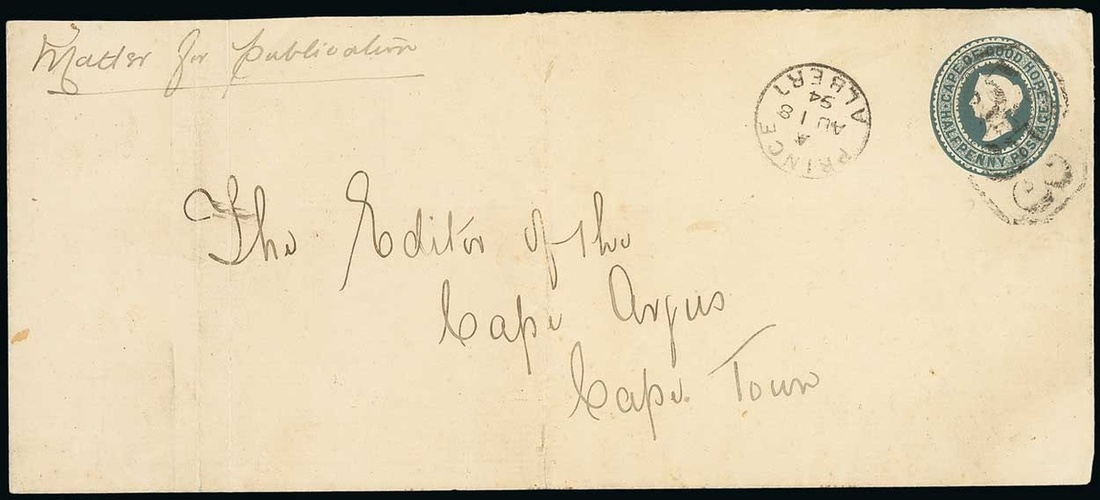 Matter for Publication
CAPE OF GOOD HOPE
HALF PENNY POSTAGE
PRINCE ALBERT
4
AU 18
94
The Editor of the
Cape Argus
Cape Town